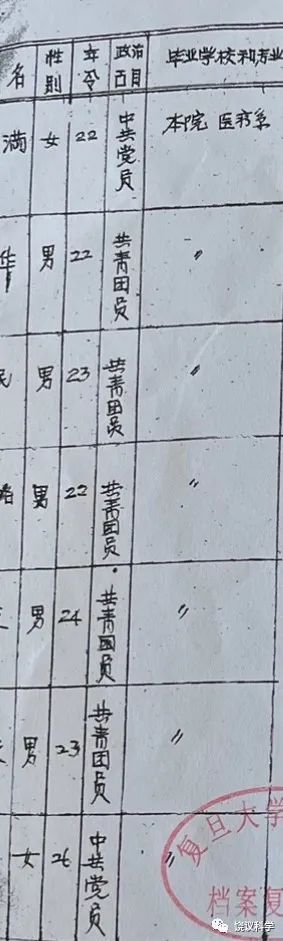 名 性别 年令 政治面目 毕业学校和专业
满 女 22 中共党员 本院 医疗系
华 男 22 共青团员 〃
民 男 23 共青团员 〃
男 22 共青团员 〃
男 24 共青团员 〃
男 23 共青团员 〃
女 26 中共党员 〃
复旦大学
档案复
饶议科学